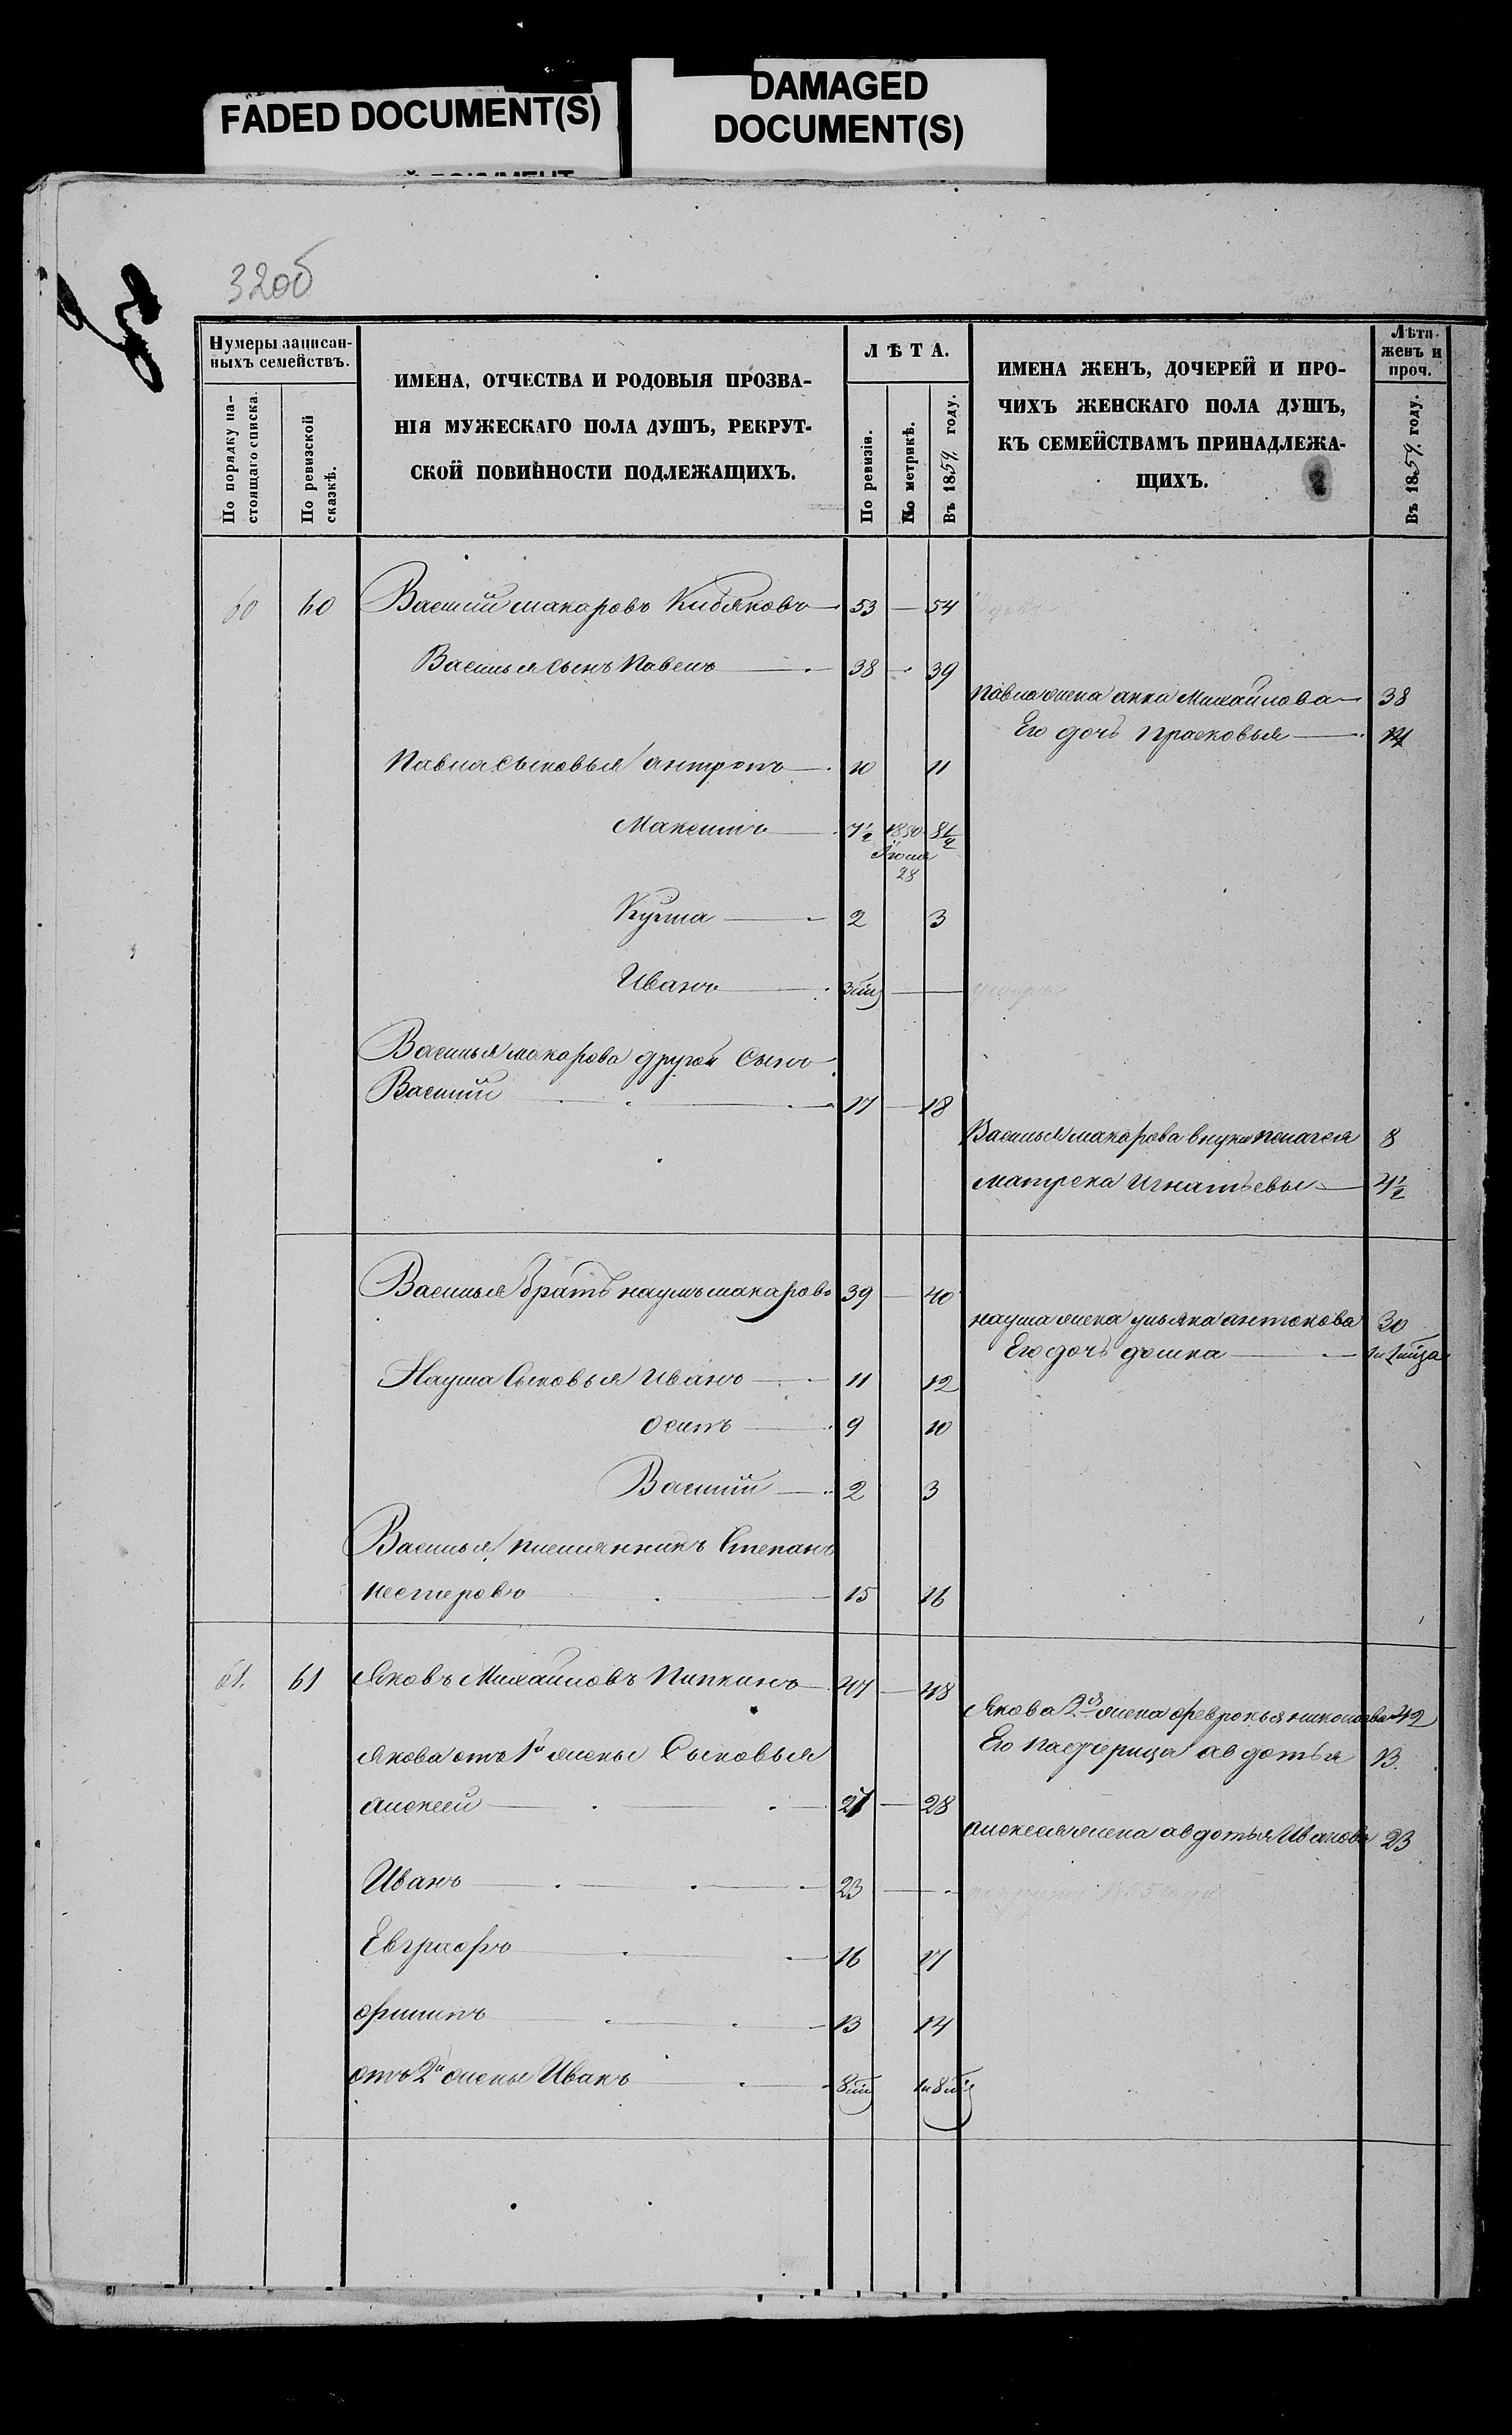 FADED DOCUMENT(S)
DAMAGED
DOCUMENT(S)
32об
Нумеры записан-
ныхъ семействъ.
По порядку на-
стоящаго списка.
По ревизской
сказкѣ.
ИМЕНА, ОТЧЕСТВА И РОДОВЫЯ ПРОЗВА-
НІЯ МУЖЕСКАГО ПОЛА ДУШЪ, РЕКРУТ-
СКОЙ ПОВИННОСТИ ПОДЛЕЖАЩИХЪ.
ЛѢТА.
По ревизіи.
По метрикѣ.
Въ 1859 году.
ИМЕНА ЖЕНЪ, ДОЧЕРЕЙ И ПРО-
ЧИХЪ ЖЕНСКАГО ПОЛА ДУШЪ,
КЪ СЕМЕЙСТВАМЪ ПРИНАДЛЕЖА-
ЩИХЪ.
Лѣта
женъ и
проч.
Въ 1859 году.
60 60 Василий макаровъ Кибяковъ 53 — 54
Василья сынъ Павелъ 38 — 39
Павла жена анна Михайлова 38
Его дочь Прасковья 14
Павла сыновья антропъ 10 11
Максимъ 7½ 1850 8½
Июня
28
Кузма 2 3
Иванъ 3 —
Василья макарова другой сынъ
Василий 17 — 18
Василья макарова внуки пелагея 8
матрена Игнатьевы 4½
Василья братъ наумъ макаровъ 39 — 40
наума жена ульяна антонова 30
Его дочь домна
Наума сыновья Иванъ 11 12
осипъ 9 10
Василий 2 3
Василья племянникъ Степанъ
нестеровъ 15 16
61. 61 Яковъ Михайловъ Пипкинъ 47 — 48
Якова 2я жена февронья николаева 42
Якова отъ 1й жены Сыновья
Его падчерица авдотья 13.
алексей 27 — 28
алексея жена авдотья Иванова 23
Иванъ 23 —
Евграфъ 16 17
филипъ 13 14
отъ 2й жены Иванъ